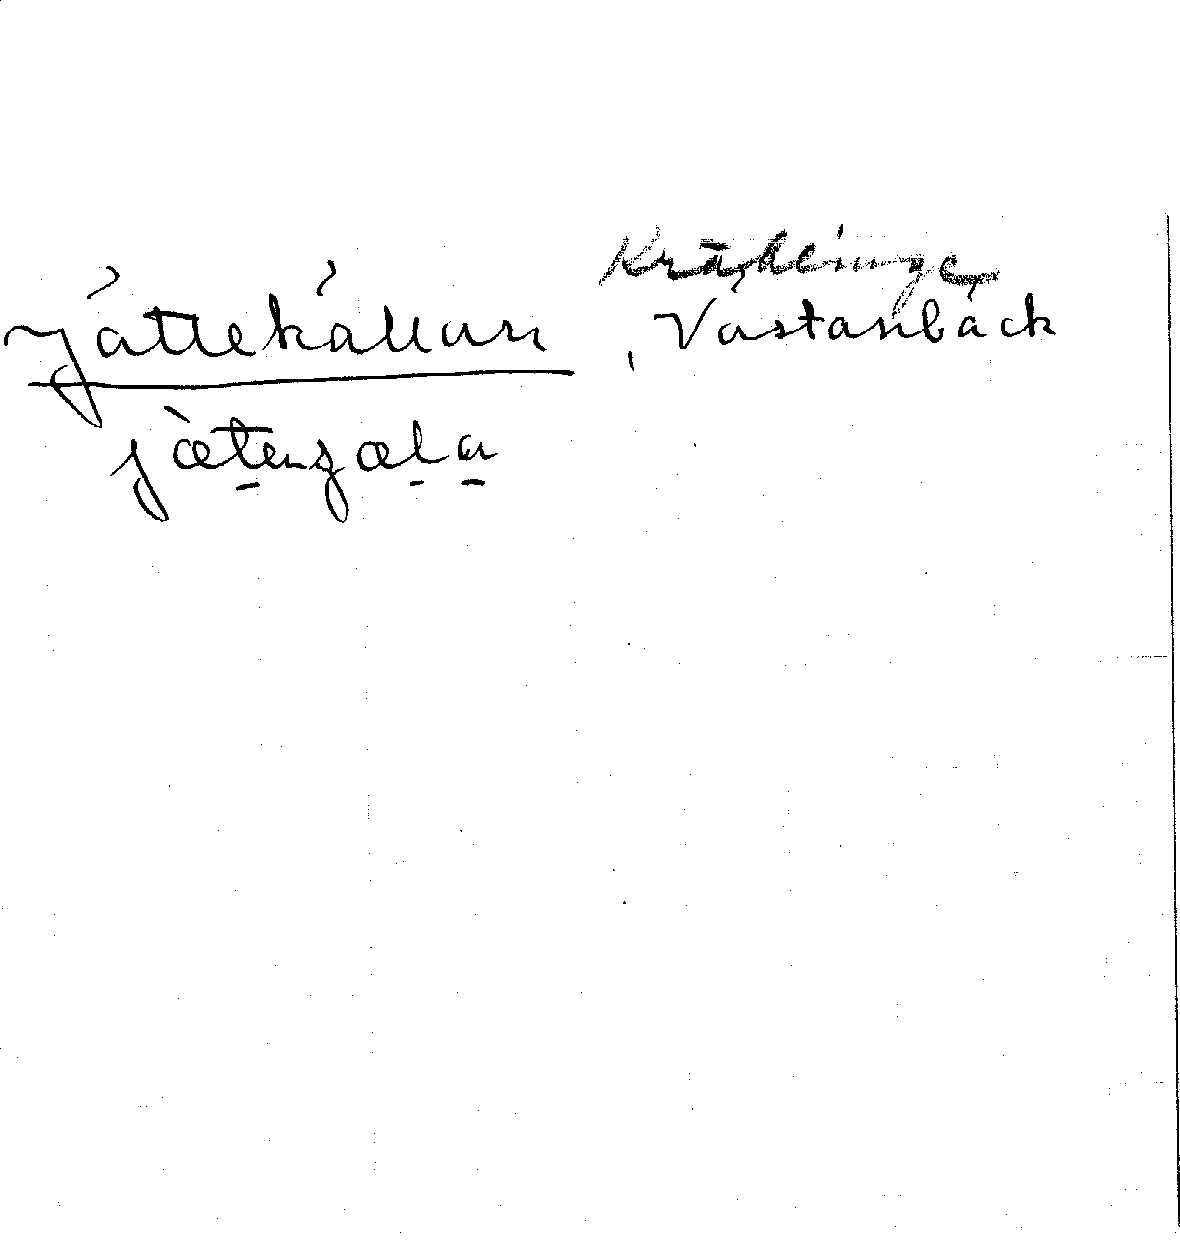 Kräklinge
Jättekällan, Västanbäck
jæ̀tenɟæla